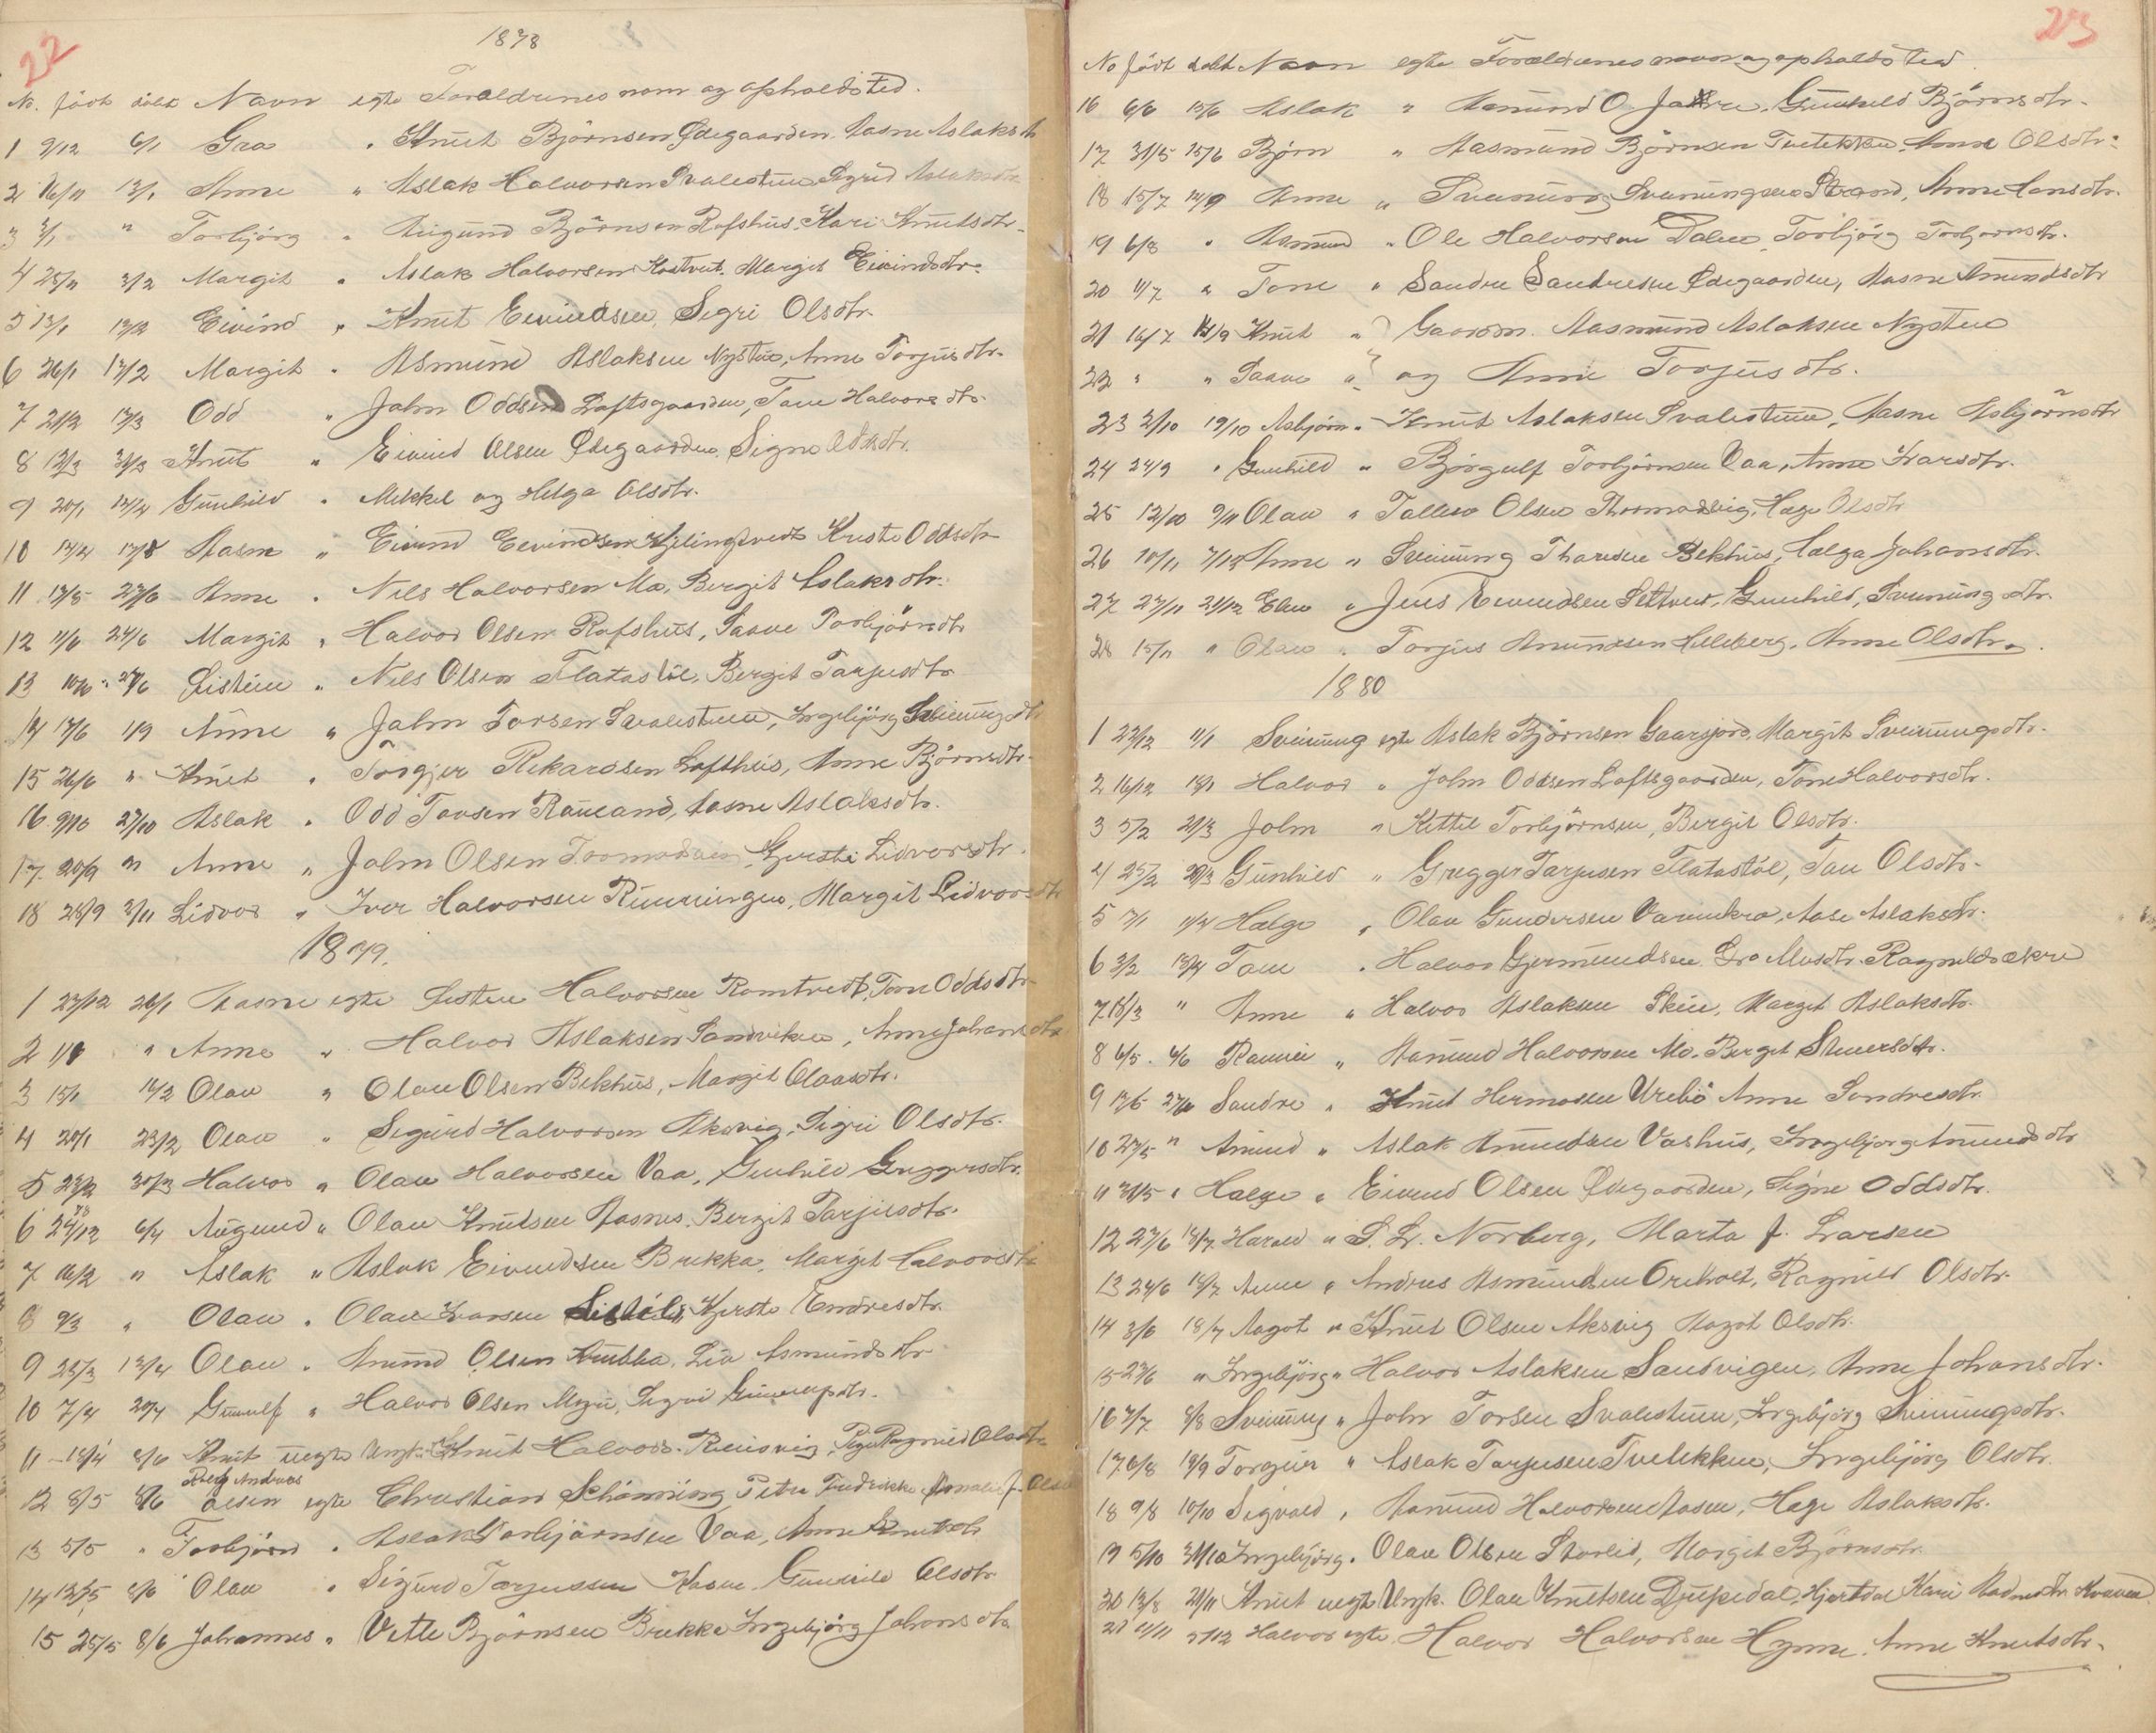 22
1878
No. født døbt Navn egte Foraldrenes navn og opholdsted.
1 9/12 6/1 Gro " Knut Björnsen Ødegaarden. Aasne Aslaksd
2 16/11 13/1 Anne " Aslak Halvorsen Svalestuen Sigrid Aslaksdtr
3 3/1 " Torbjörg " Augund Björnsen Rofshus. Kari Knutsdtr.
4 25/11 3/2 Margit " Aslak Halvorsen Kostveit. Margit Eivindsdtr.
5 13/1 17/2 Eivind " Knut Eivindsen, Segri Olsdtr.
6 26/1 17/2 Margit " Asmund Aslaksen Nystue, Anne Torjusdtr.
7 21/2 17/3 Odd " John Oddsen Loftsgaarden, Tone Halvorsdtr.
8 12/3 31/3 Knut " Eivind Olsen Ødegaarden. Signe Oddsdtr.
9 20/1 14/4 Gunhild " Mikkel og Helga Olsdtr.
10 14/4 17/5 Aasne " Eivind Eivindsen Kjelingtvedt Kristo Oddsdtr
11 17/5 27/6 Anne " Nils Halvorsen Mo, Bergit Aslaksdtr.
12 11/6 24/6 Margit " Halvor Olsen Rofshus, Saave Torbjörnsdtr
13 10/6 27/6 Eistein " Nils Olsen Flatastöl, Bergit Tarjusdtr
14 17/6 1/9 Anne " John Torsen Svalestuen, Ingebjörg Sveinungsdtr
15 26/6 " Knut " Torgjer Rikardsen Lofthus, Anne Björnsdtr.
16 9/10 27/10 Aslak " Odd Tovsen Rauland, Aasne Aslaksdtr.
17. 20/9 " Anne " John Olsen Gjersti Lidvorsdtr.
18 28/9 3/11 Lidvor " Iver Halvorsen Runningen, Margit Lidvorsdtr
1879.
1 27/12 26/1 Aasne egte Eisten Halvorsen Romtvedt, Tone Oddsdtr
2 1/1 " Anne " Halvor Aslaksen Sandviken, Anne Johansdtr
3 15/1 16/2 Olav " Olav Olsen Bekhus, Margit Olavsdtr.
4 20/1 23/2 Olav " Sigurd Halvorsen Aksvig, Sigri Olsdtr.
5 23/2 30/3 Halvor " Olav Halvorsen Vaa, Gunhild Greggersdtr.
6 24/12 6/4 Augund " Olav Knutsen Aasnes. Bergit Tarjusdtr.
7 16/2 " Aslak " Aslak Eivindsen Brekka, Margit Halvorsdtr
8 9/3 " Olav " Olav Ivarsen Kjersto Endresdtr.
9 25/3 13/4 Olav " Amund Olsen Liv Asmundsdtr
10 7/4 20/4 Gunulf " Halvor Olsen Sigri Gunulfsdtr.
11 18/4 8/6 Knut uegte Ungk. Knut Halvors. Pige Ragnild Olsdtr
12 8/5 8/6 Rolf Andreas Olsen egte Christian Schönning Petra Fredrikke
13 5/5 " Torbjörn " Aslak Torbjörnsen Vaa, Anne Knutsdtr
14 13/5 8/6 Olav " Sigurd Tarjussen Gunhild Olsdtr
15 25/5 8/6 Johannes " Vetle Björnsen Brekke Ingebjörg Johansdtr.
23
No født døbt Navn egte Foraldrenes navn og opholdsted.
16 6/6 15/6 Aslak " Aamund O. Gunhild Björnsdtr.
17 31/5 15/6 Björn " Aasmund Björnsen Tvelekken. Anne Olsdtr.
18 15/7 14/9 Anne " Sveinung Sveinungsen Strand, Anne Hansdtr.
19 6/8 " Asmund " Ole Halvorsen Dalen. Torbjörg Torbjornsdtr.
20 11/7 " Tone " Sandre Sandresen Ødegaarden, Aasne Amundsdtr
21 16/7 14/9 Knut " Gaardm. Aasmund Aslaksen Nystuen
22 " " Saave " og Anne Torjusdtr.
23 2/10 19/10 Asbjörn " Knut Aslaksen Svalestuen, Aasne Asbjörnsdtr
24 24/9 " Gunhild " Björgulf Torbjörnsen Vaa, Anne Ivarsdtr.
25 12/10 9/11 Olav " Tallev Olsen Thormodsvig, Hæge Olsdtr
26 10/11 7/12 Anne " Sveinung Tharsen Bekhus, Hælga Johansdtr.
27 27/11 21/12 Elen " Jens Eivindsen Gunhild, Sveinungsdtr.
28 15/11 " Olav " Torjus Amundsen Lilleberg, Anne Olsdtr.
1880
1 22/12 11/1 Sveinung egte Aslak Björnsen Gaarsjord, Margit Sveinungsdtr.
2 16/12 18/1 Halvor " John Oddsen Loftsgaarden, Tone Halvorsdtr.
3 5/2 21/3 John " Kittil Torbjörnsen, Bergit Olsdtr.
4 25/2 29/3 Gunhild " Gregger Tarjusen Flatastöl, Tou Olsdtr.
5 7/1 11/4 Hælge " Olav Gundersen Varmekra, Aase Aslaksdtr.
6 3/2 18/4 Tone " Halvor Gjermundsen. Gro Ragnildsakre
7 18/3 " Anne " Halvor Aslaksen Skin, Margit Aslaksdtr.
8 6/5 6/6 " Aamund Halvorsen Mo. Bergit
9 17/5 27/6 Sandre " Knut Hermosen Urebö Anne Sondresdtr.
10 27/5 " Amund " Aslak Amundsen Vashus, Ingebjorg Amundsdtr
11 31/5 " Hælge " Eivind Olsen Ødegaarden, Signe Oddsdtr.
12 27/6 18/7 Harald " S. L. Norberg, Marta J. Larsen
13 24/6 18/7 Anne " Andres Asmundsen Ragnild Olsdtr.
14 3/6 18/7 Aagot " Knut Olsen Aksvig Aagot Olsdtr.
15 27/6 " Ingebjörg " Halvor Aslaksen Sandvigen, Anne Johansdtr.
16 7/7 8/8 Sveinung " John Torsen Svalestuen, Ingebjörg Sveinungsdtr.
17 6/8 19/9 Torgeir " Aslak Tarjusen Tvelekken, Ingebjörg Olsdtr.
18 9/8 10/10 Sigvald " Aamund Halvorsen Aasen, Hæge Aslaksdtr.
19 5/10 31/10 Ingebjörg " Olav Olsen Storlid, Margit Björnsdtr.
20 13/8 21/11 Knut uegte Ungk. Olav Knutsen Djupedal, Hjertdal Kari
21 11/11 5/12 Halvor egte Halvor Halvorsen Hynne. Anne Knutsdtr.